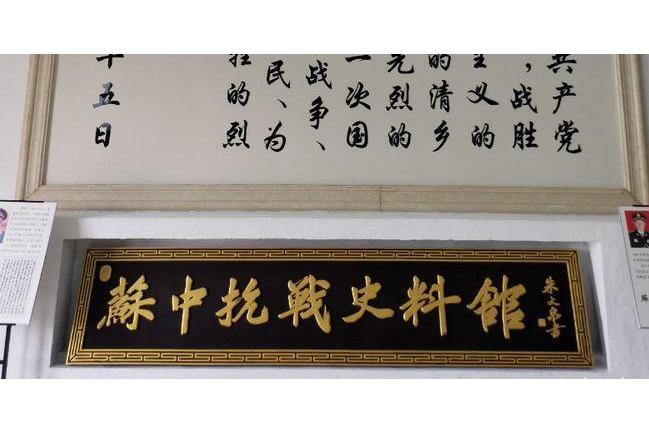 共产党
，战胜
主义的
的清乡
烈的
一次国
战争、
民、为
牲的烈
十五日
蘇中抗戦史料館
朱文泉書